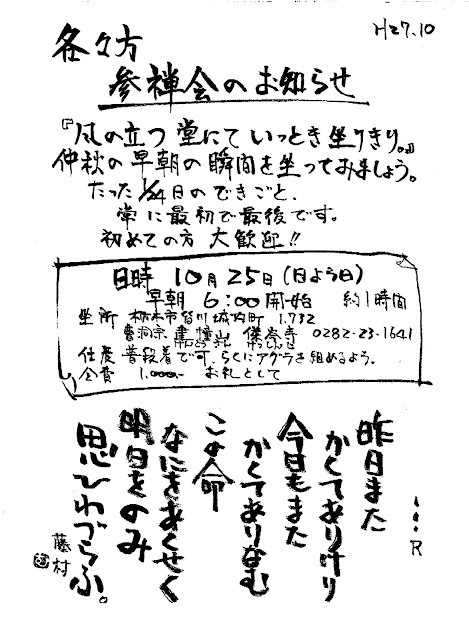 H27.10
各々方
参禅会のお知らせ
『風の立つ堂にていっとき坐りきり。』
仲秋の早朝の瞬間を坐ってみましょう。
たった1/24日のできごと、
常に最初で最後です。
初めての方 大歓迎!!
日時 10月25日(日よう日)
早朝 6:00開始 約1時間
坐所 栃木市皆川城内町 1.732
曹洞宗 建幢山 傑岑寺 0282-23-1641
仕度 普段着で可、らくにアグラを組めるよう。
会費 1.000- お礼として
昨日また
かくてありけり
今日もまた
かくてありなむ
この命
なにをあくせく
明日をのみ
思ひわづらふ。
藤村
R